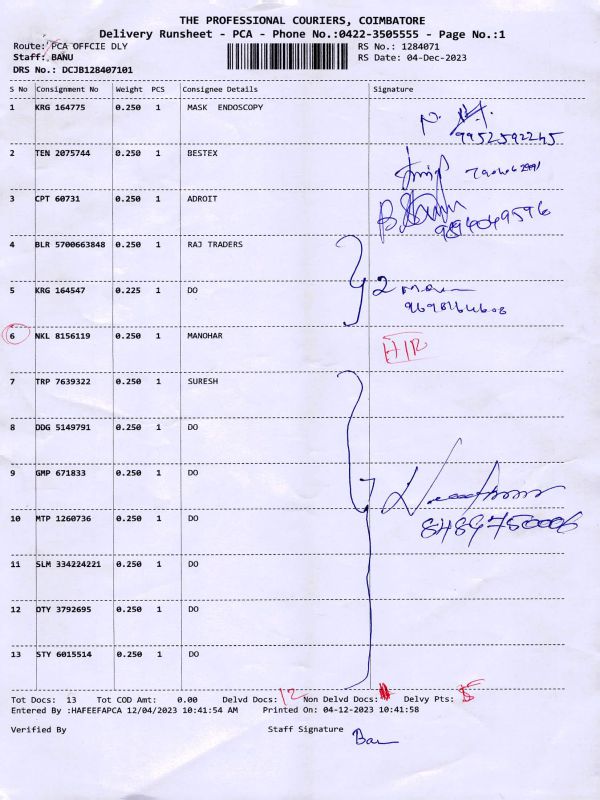 THE PROFESSIONAL COURIERS, COIMBATORE
Delivery Runsheet - PCA - Phone No.:0422-3505555 - Page No.:1
Route: PCA OFFCIE DLY RS No.: 1284071
Staff: BANU RS Date: 04-Dec-2023
DRS No.: DCJB128407101
S No Consignment No Weight PCS Consignee Details Signature
1 KRG 164775 0.250 1 MASK ENDOSCOPY
9952592245
2 TEN 2075744 0.250 1 BESTEX
3 CPT 60731 0.250 1 ADROIT
9894049596
4 BLR 5700663848 0.250 1 RAJ TRADERS
5 KRG 164547 0.225 1 DO 2
6 NKL 8156119 0.250 1 MANOHAR H/R
7 TRP 7639322 0.250 1 SURESH
8 DDG 5149791 0.250 1 DO
9 GMP 671833 0.250 1 DO
10 MTP 1260736 0.250 1 DO 8489750006
11 SLM 334224221 0.250 1 DO
12 OTY 3792695 0.250 1 DO
13 STY 6015514 0.250 1 DO
Tot Docs: 13 Tot COD Amt: 0.00 Delvd Docs: 12 Non Delvd Docs: Delvy Pts:
Entered By :HAFEEFAPCA 12/04/2023 10:41:54 AM Printed On: 04-12-2023 10:41:58
Verified By Staff Signature